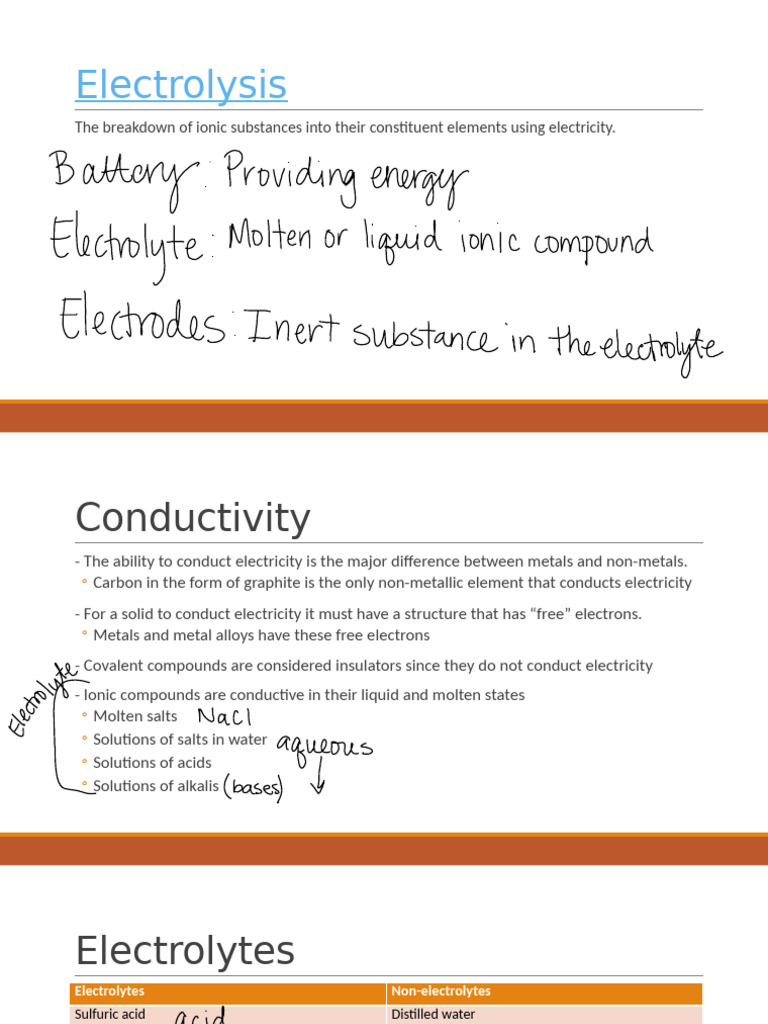 Electrolysis
The breakdown of ionic substances into their constituent elements using electricity.
Battery: Providing energy
Electrolyte: Molten or liquid ionic compound
Electrodes: Inert substance in the electrolyte
Conductivity
- The ability to conduct electricity is the major difference between metals and non-metals.
° Carbon in the form of graphite is the only non-metallic element that conducts electricity
- For a solid to conduct electricity it must have a structure that has “free” electrons.
° Metals and metal alloys have these free electrons
- Covalent compounds are considered insulators since they do not conduct electricity
Electrolyte
- Ionic compounds are conductive in their liquid and molten states
° Molten salts NaCl
° Solutions of salts in water aqueous
° Solutions of acids
° Solutions of alkalis (bases)
Electrolytes
Electrolytes Non-electrolytes
Sulfuric acid acid Distilled water